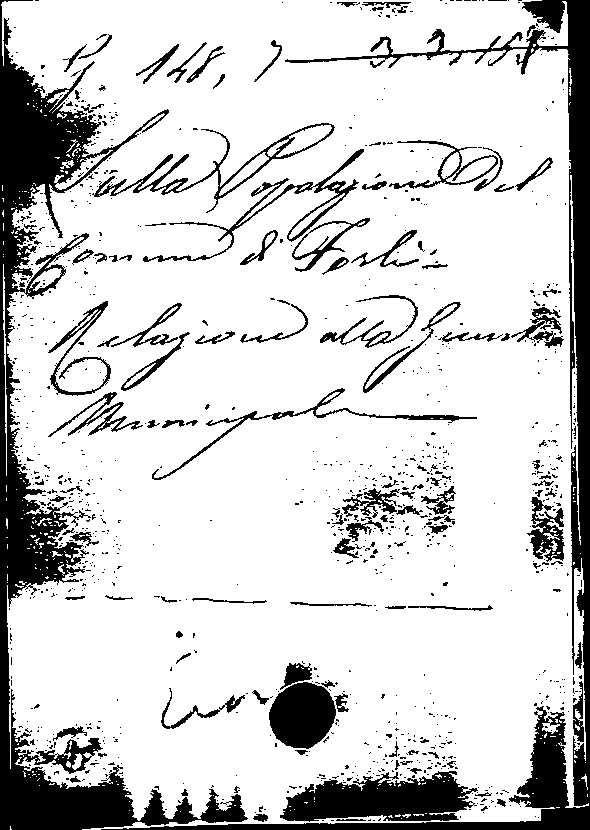 G. 148, 7 — 3. 3. 15.
Sulla Popolazione del
Comune di Forlì:
Relazione alla Giunta
Municipale